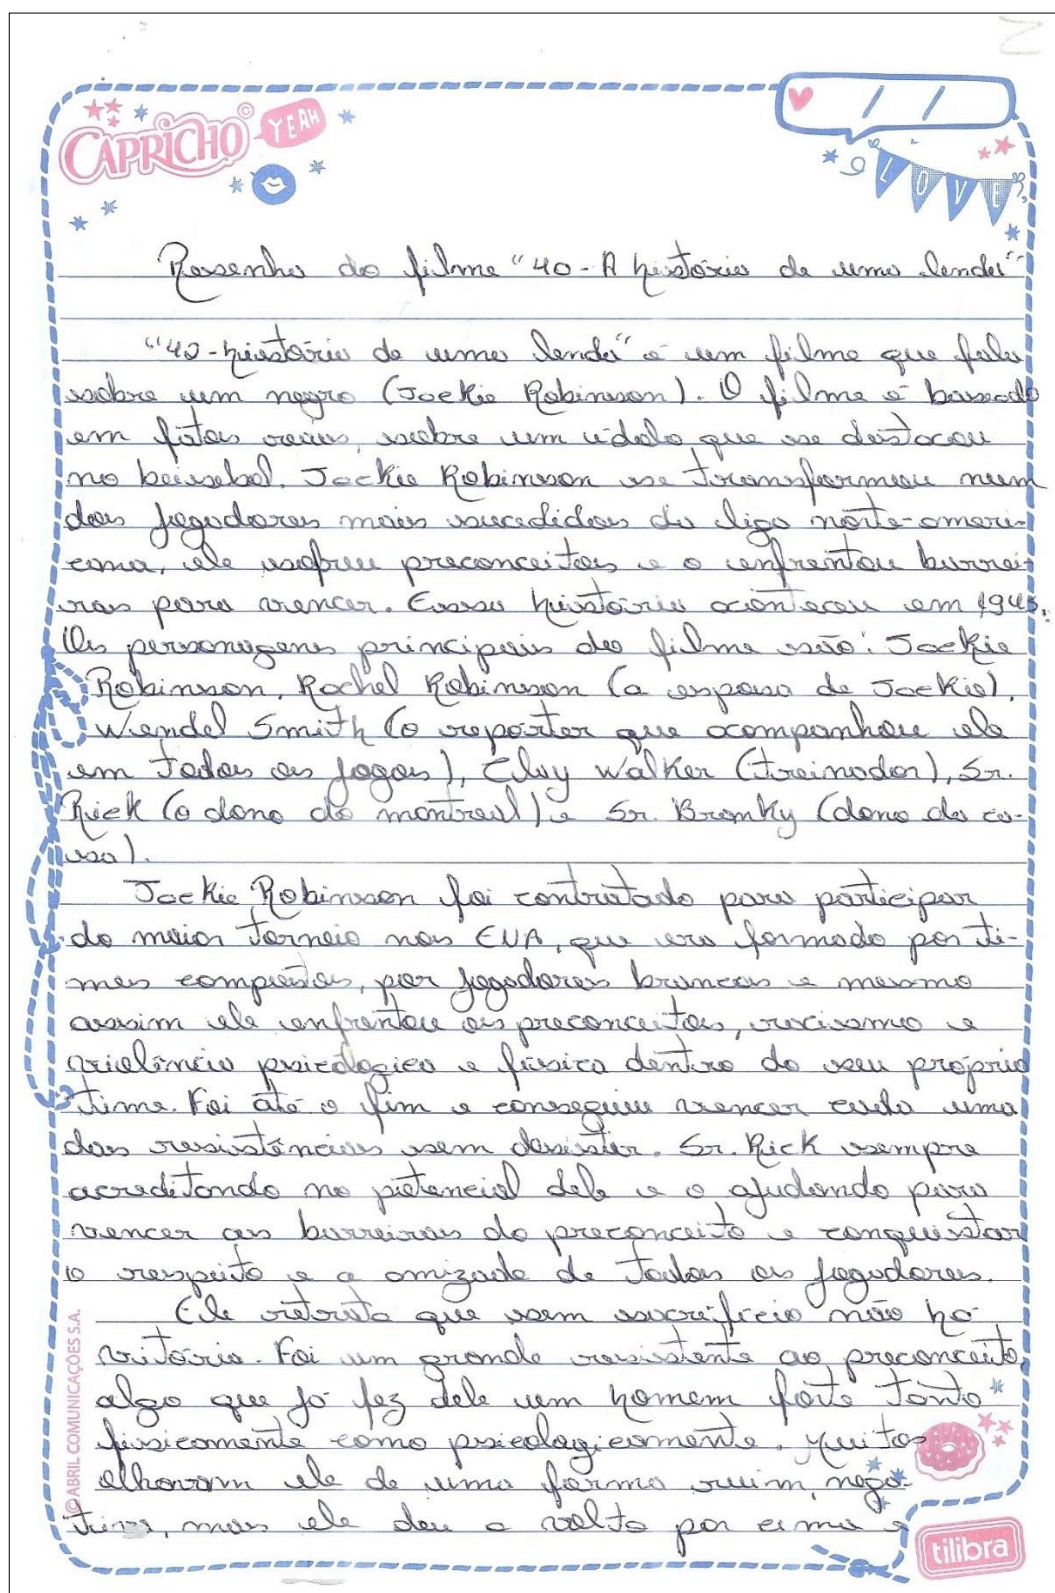 CAPRICHO ©
YEAH
/ /
LOVE
Resenha do filme "40 - A história de uma lenda"
"40 - história de uma lenda" é um filme que fala
sobre um negro (Jackie Robinson). O filme é baseado
em fatos reais, sobre um ídolo que se destacou
no beisebol. Jackie Robinson se transformou num
dos jogadores mais sucedidos da liga norte-ameri-
cana, ele sofreu preconceitos e o enfrentou barrei-
ras para vencer. Essa história aconteceu em 1945.
Os personagens principais do filme são: Jackie
Robinson, Rachel Robinson (a esposa de Jackie),
Wendel Smith (o repórter que acompanhou ele
em todos os jogos), Clay Walker (treinador), Sr.
Rick (o dono do montreal) e Sr. Bromky (dono da ca-
sa).
Jackie Robinson foi contratado para participar
do maior torneio nos EUA, que era formado por ti-
mes compostos, por jogadores brancos e mesmo
assim ele enfrentou os preconceitos, racismo e
violência psicológica e física dentro do seu próprio
time. Foi até o fim e conseguiu vencer cada uma
das resistências sem desistir. Sr. Rick sempre
acreditando no potencial dele e o ajudando para
vencer as barreiras do preconceito e conquistar
o respeito e a amizade de todos os jogadores.
Ele retrata que sem sacrifício não há
vitória. Foi um grande resistente ao preconceito,
algo que já fez dele um homem forte tanto
fisicamente como psicologicamente. Muitos
olhavam ele de uma forma ruim, nega-
tiva, mas ele deu a volta por cima e
© ABRIL COMUNICAÇÕES S.A.
tilibra